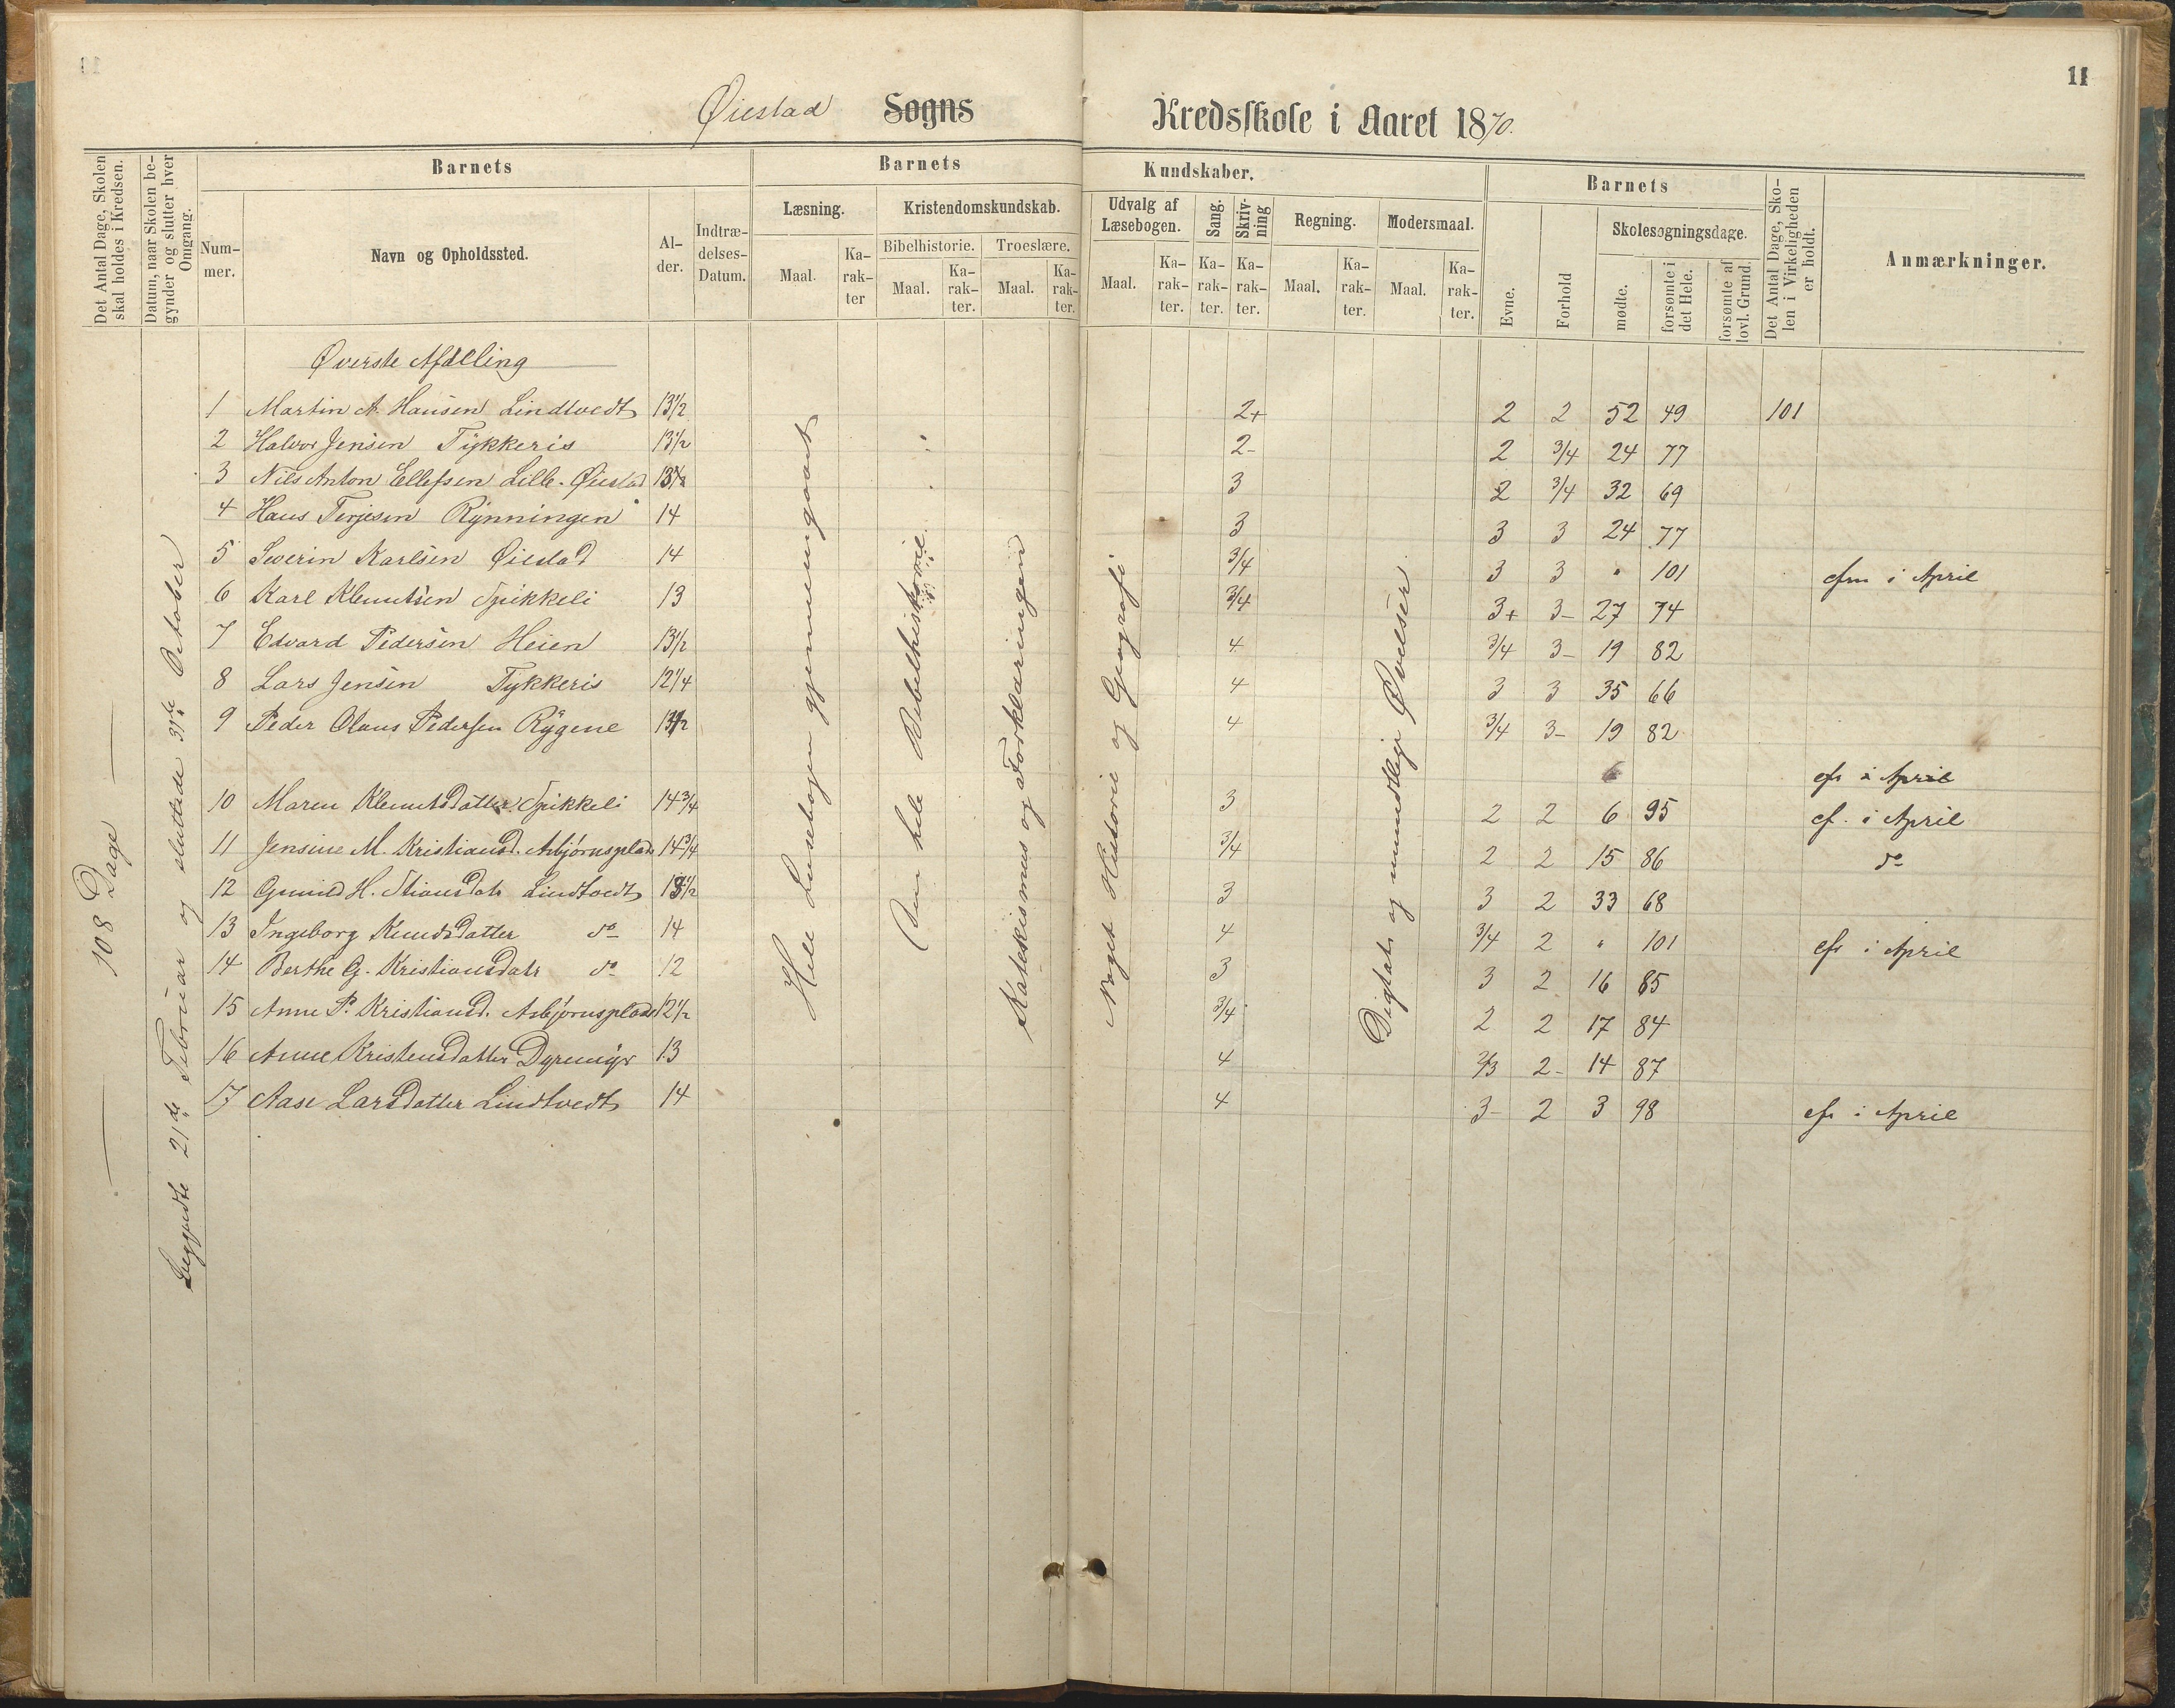 11
Øiestad Sogns Kredsskole i Aaret 1870.
Det Antal Dage, Skolen skal holdes i Kredsen.
Datum, naar Skolen begynder og slutter hver Omgang.
Barnets
Nummer.
Navn og Opholdssted.
Alder.
Indtrædelses-Datum.
Barnets Kundskaber.
Læsning.
Maal.
Karakter
Kristendomskundskab.
Bibelhistorie.
Maal.
Karakter.
Troeslære.
Maal.
Karakter.
Udvalg af Læsebogen.
Maal.
Karakter.
Sang.
Karakter.
Skrivning
Karakter.
Regning.
Maal.
Karakter.
Modersmaal.
Maal.
Karakter.
Barnets
Evne.
Forhold
Skolesøgningsdage.
mødte.
forsømte i det Hele.
forsømte af lovl. Grund.
Det Antal Dage, Skolen i Virkeligheden er holdt.
Anmærkninger.
108 Dage
Begyndte 21de Februar og sluttede 31te October
Hele Læsebogen gjennemgaaet
Den hele Bibelhistorie
Katekismus og Forklaringen
Noget Historie og Geografi
Digtat og mundtlige Øvelser
Øverste Afdeling
1 Martin A. Hansen Lindtvedt 13½ 2+ 2 2 52 49 101
2 Halvor Jensen Tykkeris 13½ 2- 2 3/4 24 77
3 Nils Anton Ellefsen Lille-Øiestad 3 2 3/4 32 69
4 Hans Terjesen Rynningen 14 3 3 3 24 77
5 Severin Karlsen Øiestad 14 3/4 3 3 " 101 cfm i April
6 Karl Klemetsen Spikkeli 13 3/4 3+ 3- 27 74
7 Edvard Pedersen Heien 13½ 4 3/4 3- 19 82
8 Lars Jensen Tykkeris 12¼ 4 3 3 35 66
9 Peder Olaus Pedersen Rygene 4 3/4 3- 19 82
cfr i April
10 Maren Klemetsdatter Spikkeli 14¾ 3 2 2 6 95 cf. i April
11 Jensine M. Kristiansd. Asbjørnsplads 14¾ 3/4 2 2 15 86 do
12 Gunild H. Stiansdatr Lindtvedt 13½ 3 3 2 33 68
13 Ingeborg Knudsdatter do 14 4 3/4 2 " 101 cfr i April
14 Berthe G. Kristiansdatr do 12 3 3 2 16 85
15 Anne P. Kristiansd. Asbjørnsplads 12½ 3/4 2 2 17 84
16 Anne Kristensdatter Dyremyr 13 4 2/3 2- 14 87
17 Aase Larsdatter Lindtvedt 14 4 3- 2 3 98 cfr i April